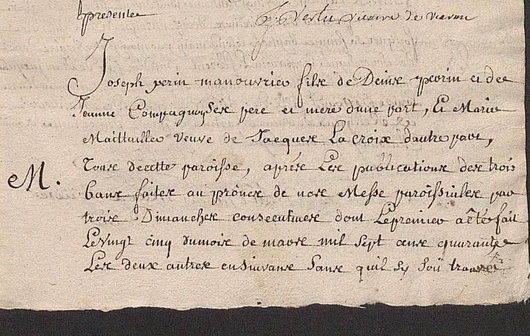 presente
vicaire de
Joseph perin manouvrier fils de Denis perin et de
Jeanne Compagnyses pere et mere d'une part, Et Marie
Maittaille veuve de Jacques La croix dautre part,
Tous decette paroisse, apres Les publications des trois
M.
bans faites au prône de nos Messe paroissiales par
trois Dimanches consecutives dont Lepremier a Eté fait
Levingt cinq dumois de mars mil sept cens quarante
Les deux autres ensuivans sans quil sy soit trouvé